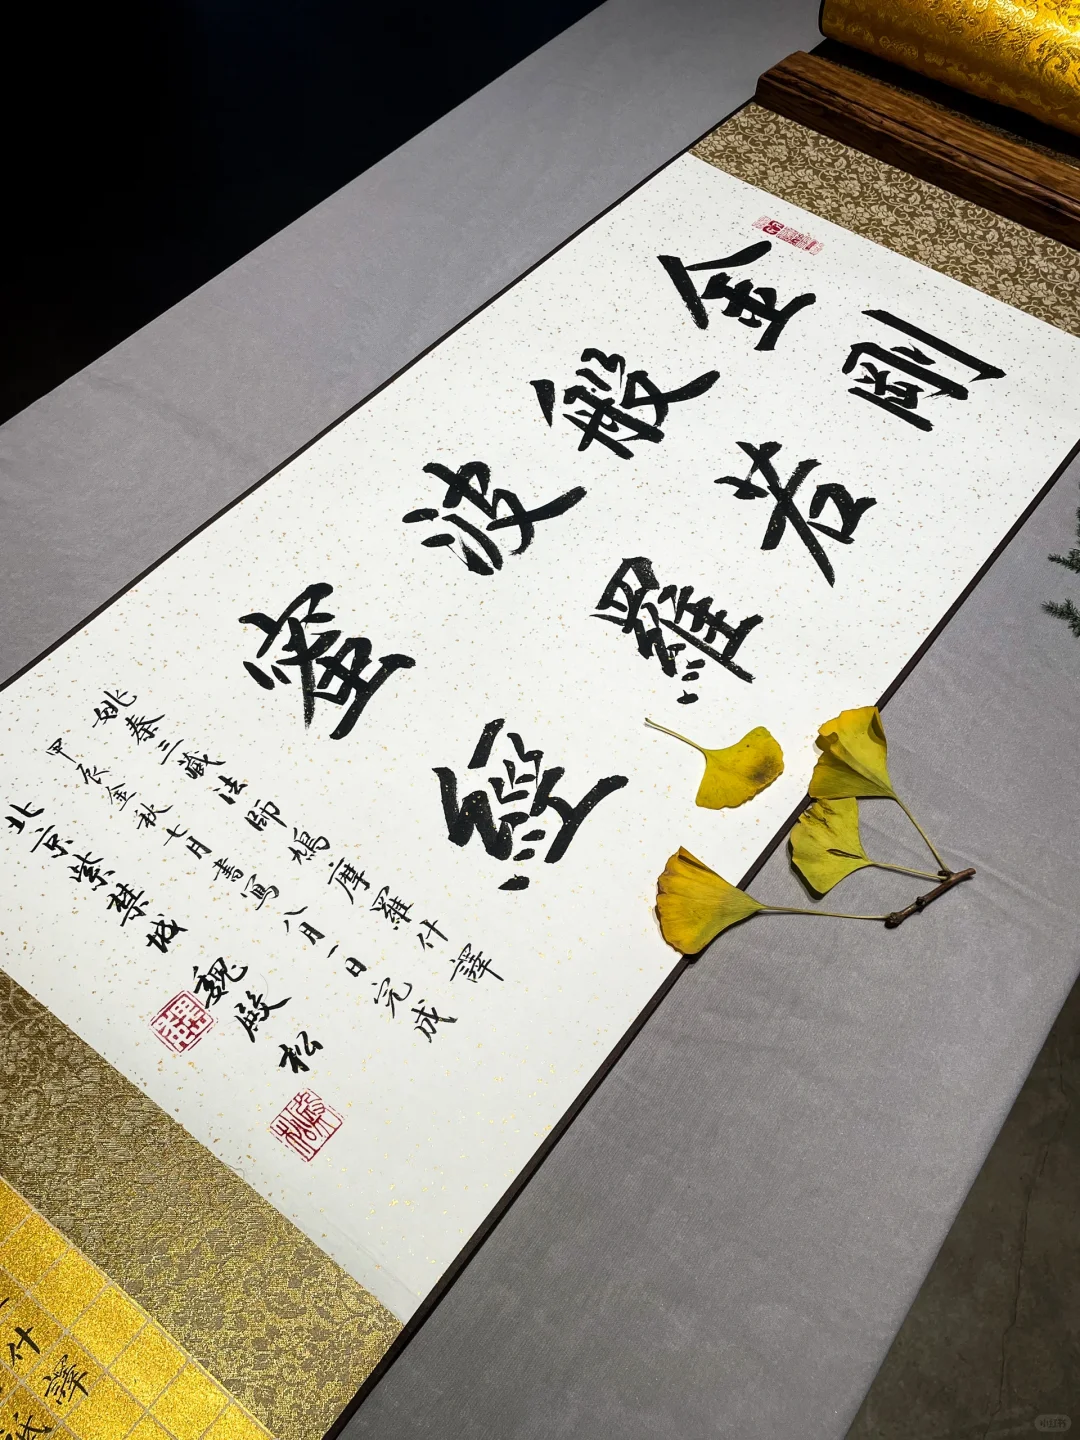 金剛
般若
波羅
蜜經
姚秦三藏法師鳩摩羅什譯
甲辰金秋七月書寫八月一日完成
北京紫禁城 魏殿松
什譯
祇
小红书